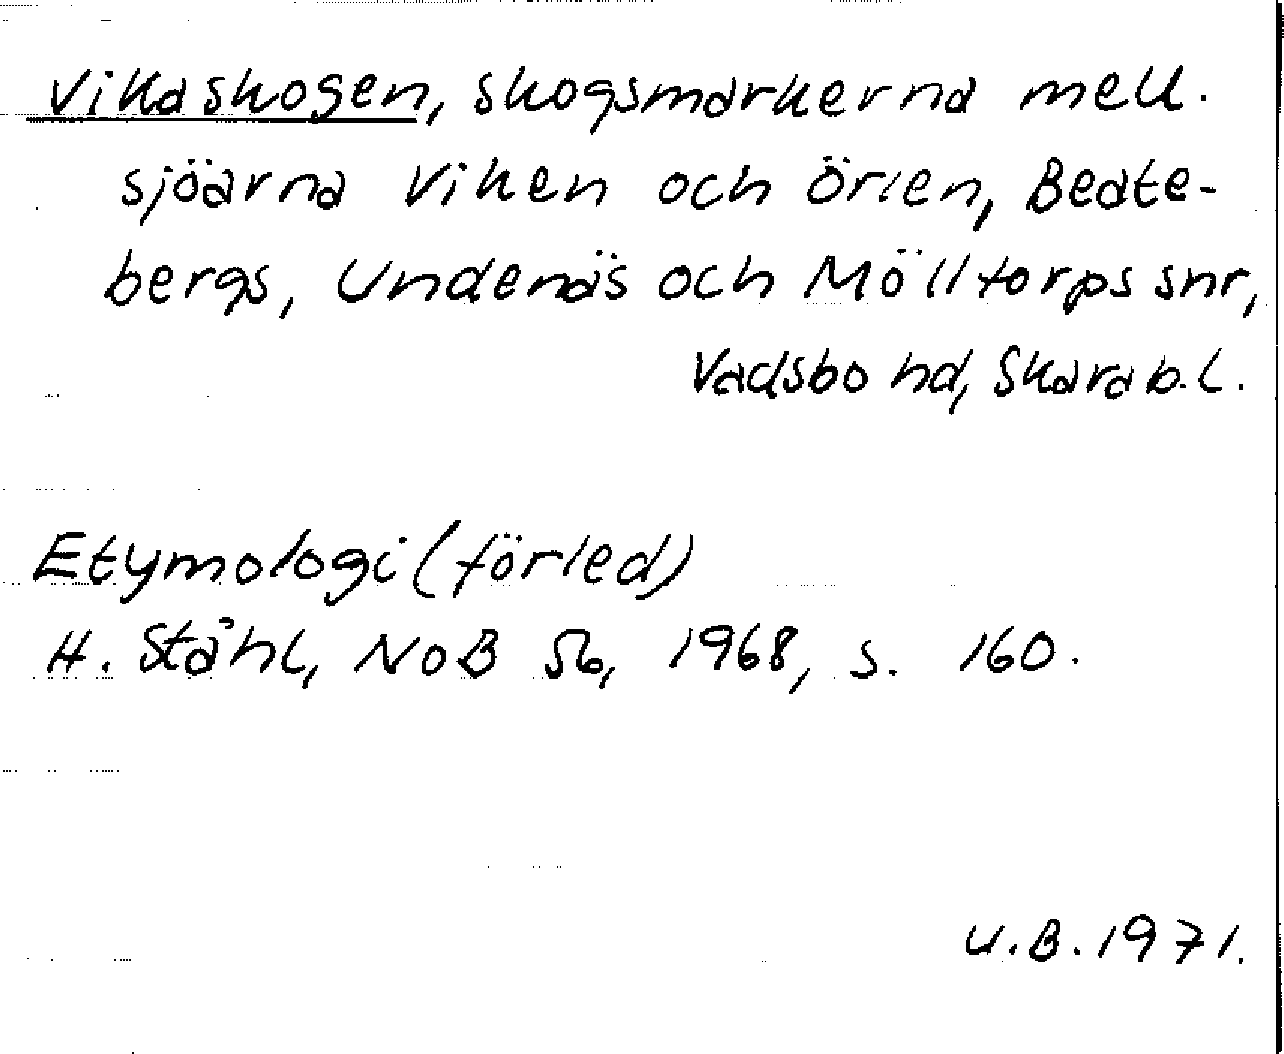 Vikaskogen, skogsmarkerna mell.
sjöarna Viken och Örlen, Beate-
bergs, Undenäs och Mölltorps snr,
Vadsbo hd, Skarab. l.
Etymologi (förled)
H. Ståhl, NoB 56, 1968, s. 160.
U.B. 1971.